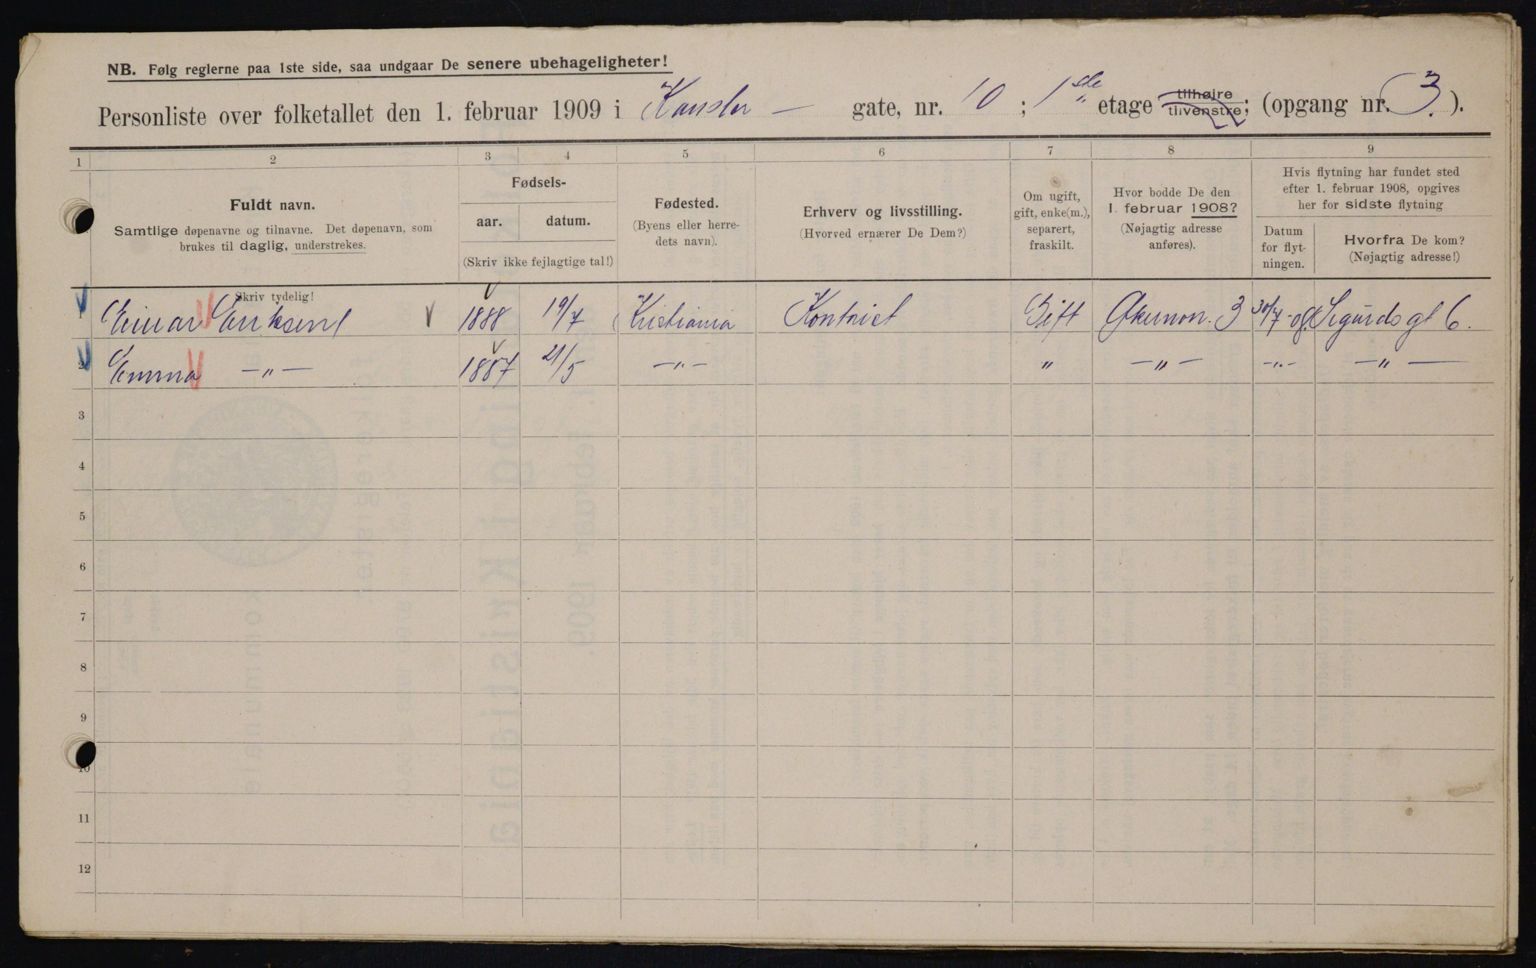 NB. Følg reglerne paa 1ste side, saa undgaar De senere ubehageligheter!
Personliste over folketallet den 1. februar 1909 i Kansler — gate, nr. 10 ; 1ste etage tilhøire tilvenstre; (opgang nr. 3.).
1 2 3 4 5 6 7 8 9
Fuldt navn.
Samtlige døpenavne og tilnavne. Det døpenavn, som
brukes til daglig, understrekes.
Skriv tydelig!
Fødsels-
aar. datum.
(Skriv ikke fejlagtige tal!)
Fødested.
(Byens eller herre-
dets navn).
Erhverv og livsstilling.
(Hvorved ernærer De Dem?)
Om ugift,
gift, enke(m.),
separert,
fraskilt.
Hvor bodde De den
1. februar 1908?
(Nøjagtig adresse
anføres).
Hvis flytning har fundet sted
efter 1. februar 1908, opgives
her for sidste flytning
Datum
for flyt-
ningen.
Hvorfra De kom?
(Nøjagtig adresse!)
1 Einar Eriksen 1888 19/7 Kristiania Kontorist Gift Økernv. 3 30/7-08. Sigurds gt 6.
2 Emma —„— 1887 21/5 —„— „ —„— -„- —„—
3
4
5
6
7
8
9
10
11
12